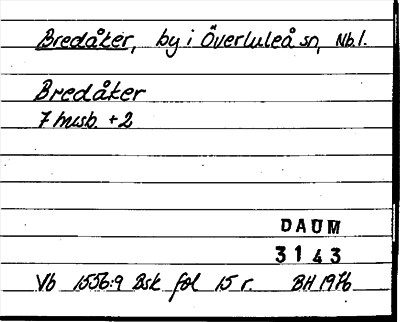 Bredåker, by i Överluleå sn, Nb.l.
Bredåker
7 husb. + 2
DAUM
3143
Vb 1556:9 Bsk fol 15 r. BH 1976